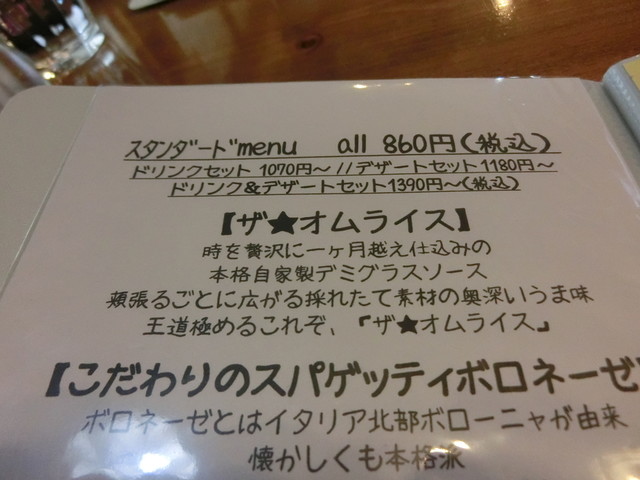 スタンダードmenu all 860円(税込)
ドリンクセット 1070円～//デザートセット1180円～
ドリンク&デザートセット1390円～(税込)
【ザ★オムライス】
時を贅沢に一ヶ月越え仕込みの
本格自家製デミグラスソース
頬張るごとに広がる採れたて素材の奥深いうま味
王道極めるこれぞ、『ザ★オムライス』
【こだわりのスパゲッティボロネーゼ
ボロネーゼとはイタリア北部ボローニャが由来
懐かしくも本格派